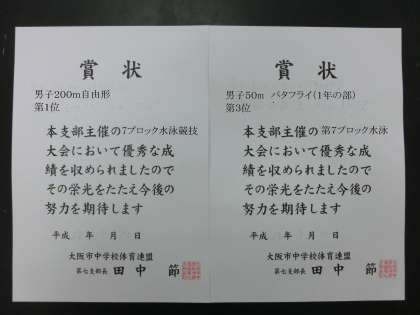 賞状
男子200m自由形
第1位
本支部主催の7ブロック水泳競技
大会において優秀な成
績を収められましたので
その栄光をたたえ今後の
努力を期待します
平成 年 月 日
大阪市中学校体育連盟
第七支部長 田中 節
賞状
男子50m バタフライ(1年の部)
第3位
本支部主催の第7ブロック水泳
大会において優秀な成
績を収められましたので
その栄光をたたえ今後の
努力を期待します
平成 年 月 日
大阪市中学校体育連盟
第七支部長 田中 節